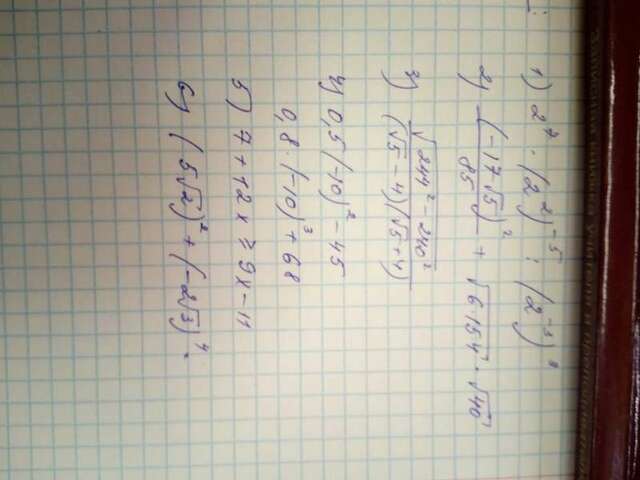 Записная книжка учителя и преподавателя
1) 2^7 · (2^2)^-5 : (2^-3)^3
2) (-17√5)^2 / 85 + √6·154 · √40
3) √244^2 - 240^2 / (√5 - 4)(√5 + 4)
4) 0,5 (-10)^2 - 45
0,8 · (-10)^3 + 68
5) 7 + 12x ≥ 9x - 11
6) (5√2)^2 + (-2√3)^4.